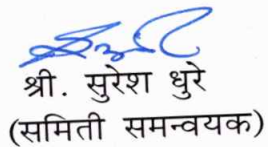 श्री. सुरेश धुरे
(समिती समन्वयक)